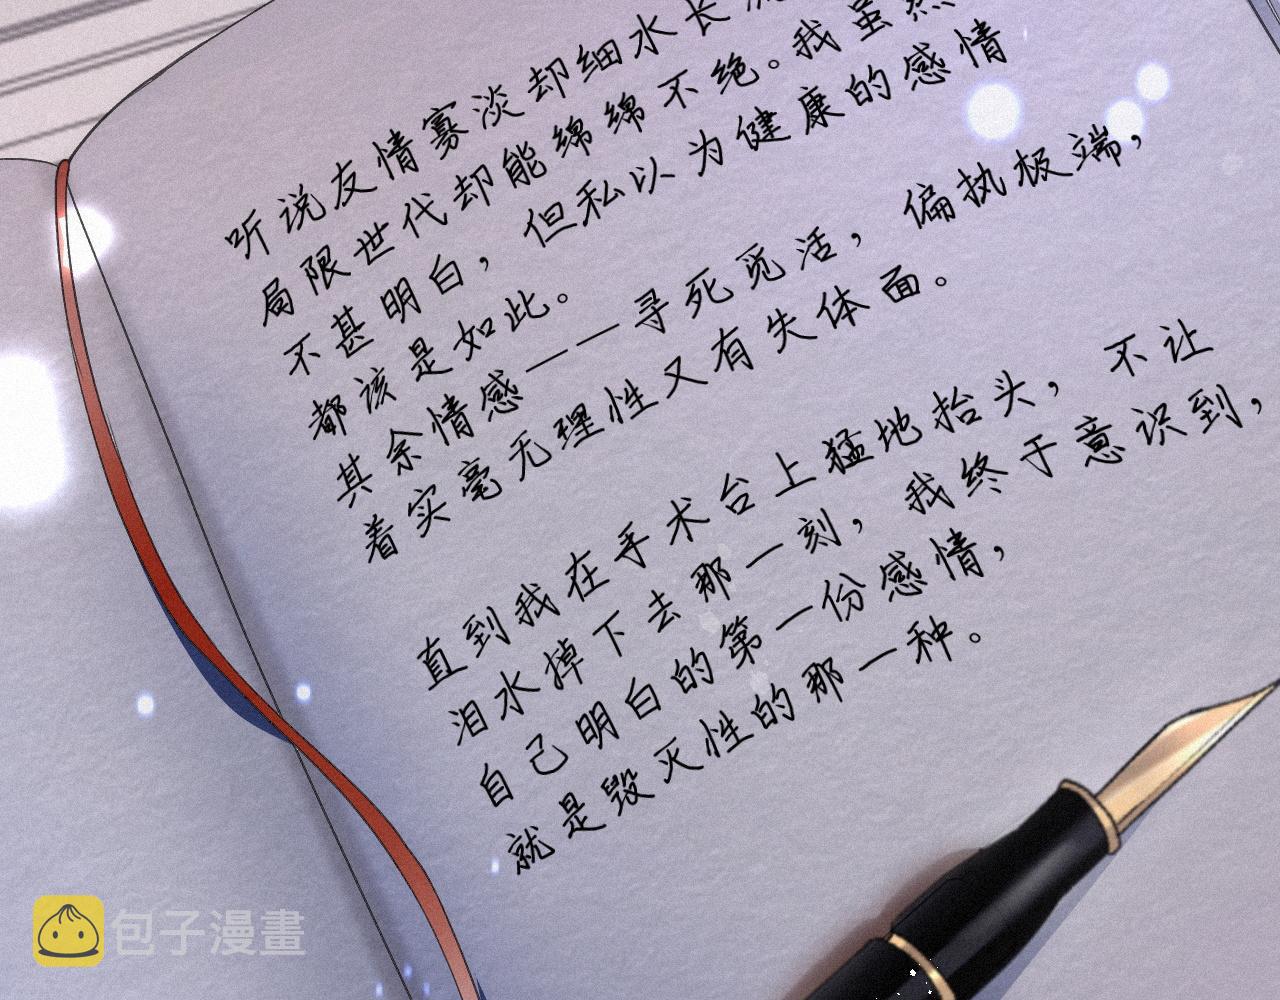 听说友情寡淡却细水长流
局限世代却能绵绵不绝。我虽然
不甚明白，但私以为健康的感情
都该是如此。
其余情感——寻死觅活，偏执极端，
着实毫无理性又有失体面。
直到我在手术台上猛地抬头，不让
泪水掉下去那一刻，我终于意识到，
自己明白的第一份感情，
就是毁灭性的那一种。
包子漫畫